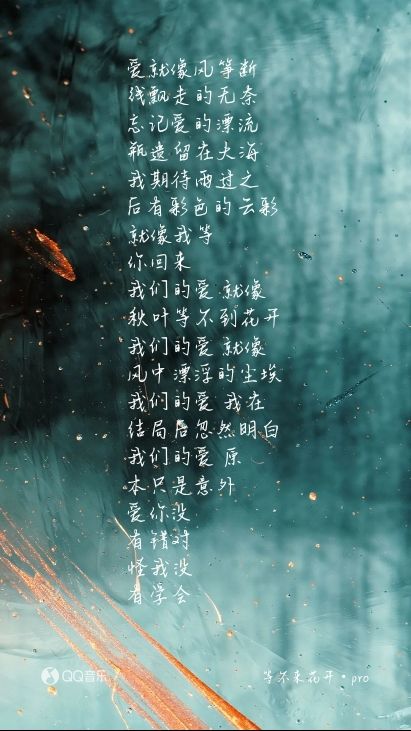 爱就像风筝断
线飘走的无奈
忘记爱的漂流
瓶遗留在大海
我期待雨过之
后有彩色的云彩
就像我等
你回来
我们的爱 就像
秋叶等不到花开
我们的爱 就像
风中漂浮的尘埃
我们的爱 我在
结局后忽然明白
我们的爱 原
本只是意外
爱你没
有错对
怪我没
有学会
QQ音乐
等不来花开·pro